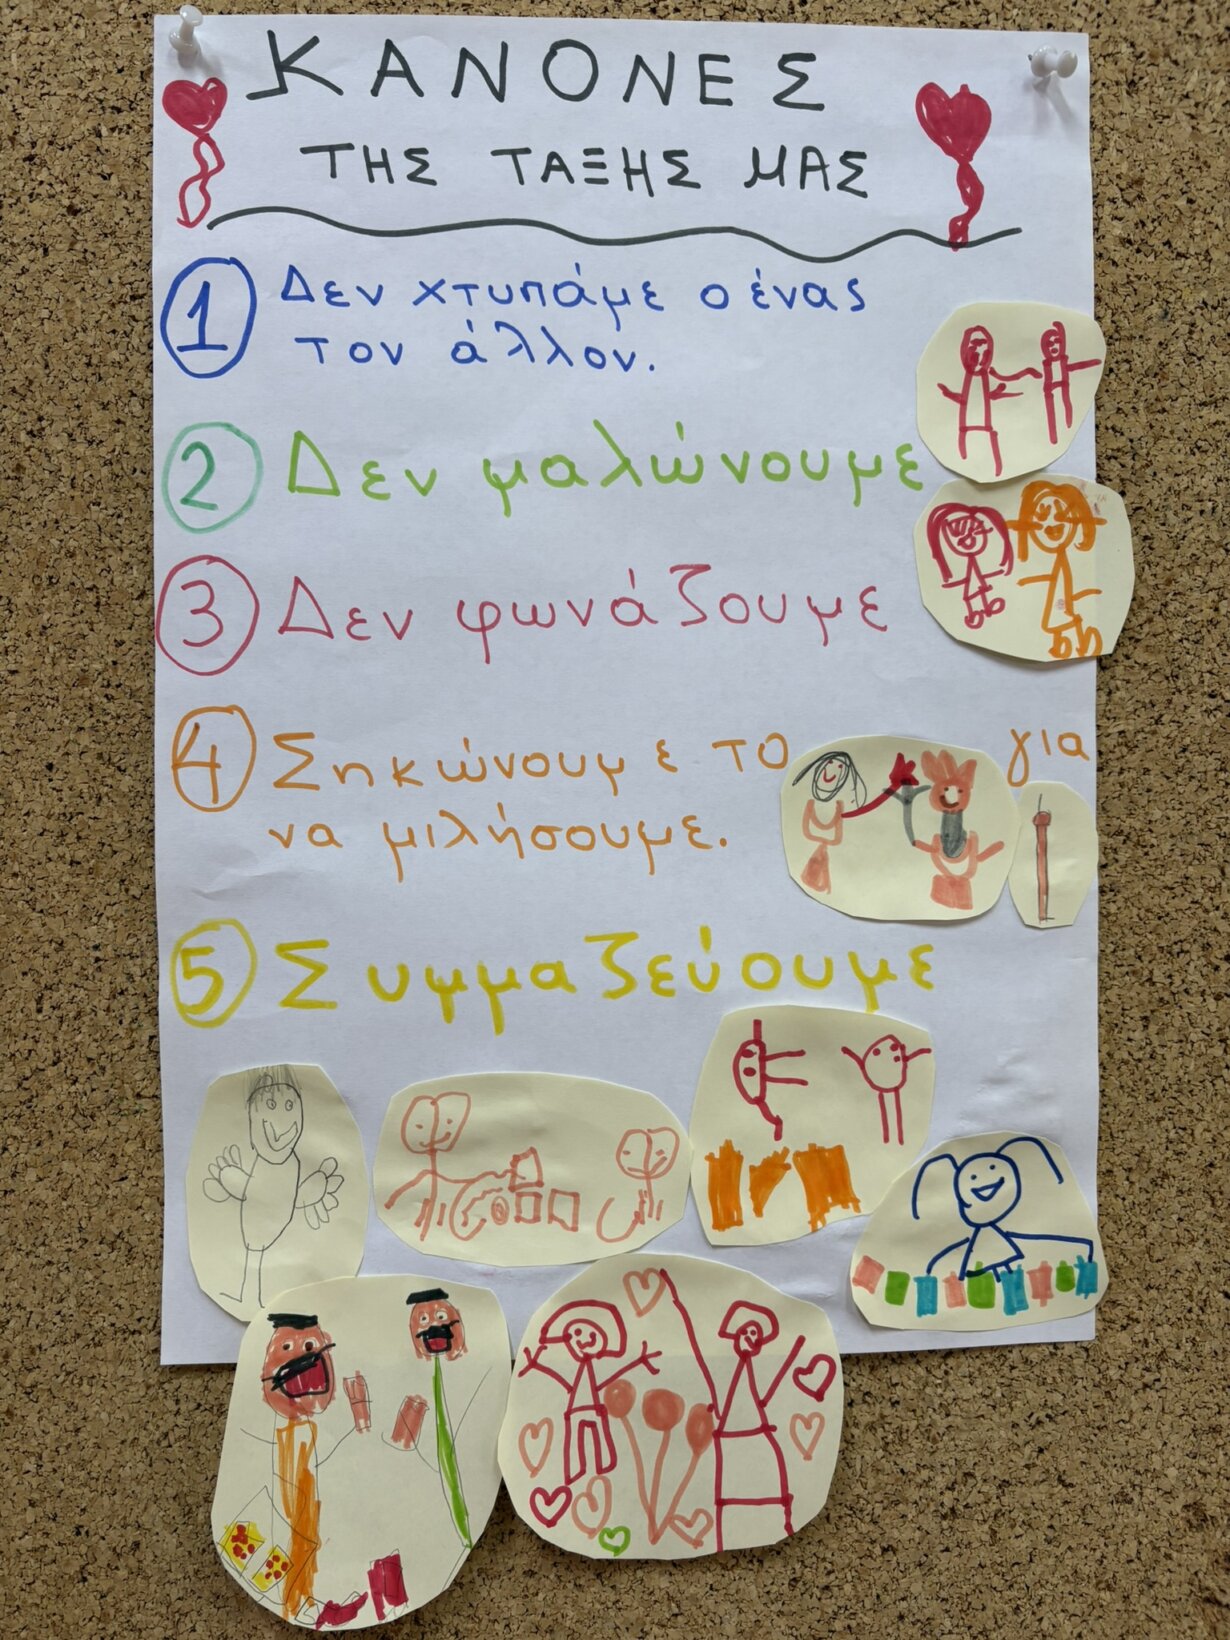 ΚΑΝΟΝΕΣ
ΤΗΣ ΤΑΞΗΣ ΜΑΣ
1 Δεν χτυπάμε ο ένας
τον άλλον.
2 Δεν μαλώνουμε
3 Δεν φωνάζουμε
4 Σηκώνουμε το για
να μιλήσουμε.
5 Συμμαζεύουμε